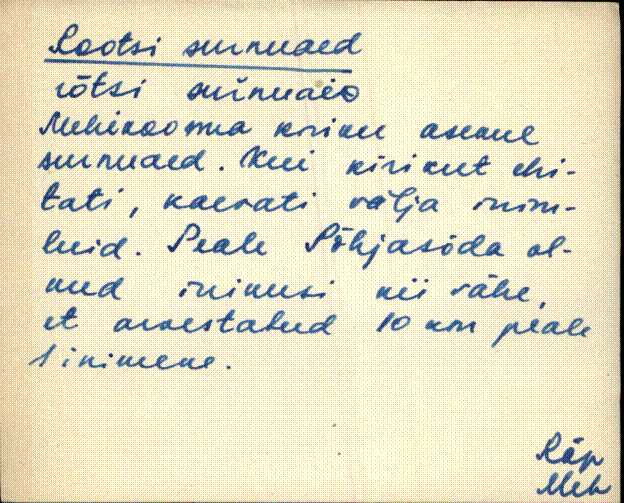 Rootsi surnuaed
rōtsi surnuaiɒ
Mehikoorma kiriku asemel
surnuaed. Kui kirikut ehi-
tati, kaevati välja inim-
luid. Peale Põhjasõda ol-
nud inimesi nii vähe,
et arvestatud 10 km peale
1 inimene.
Räp
Meh